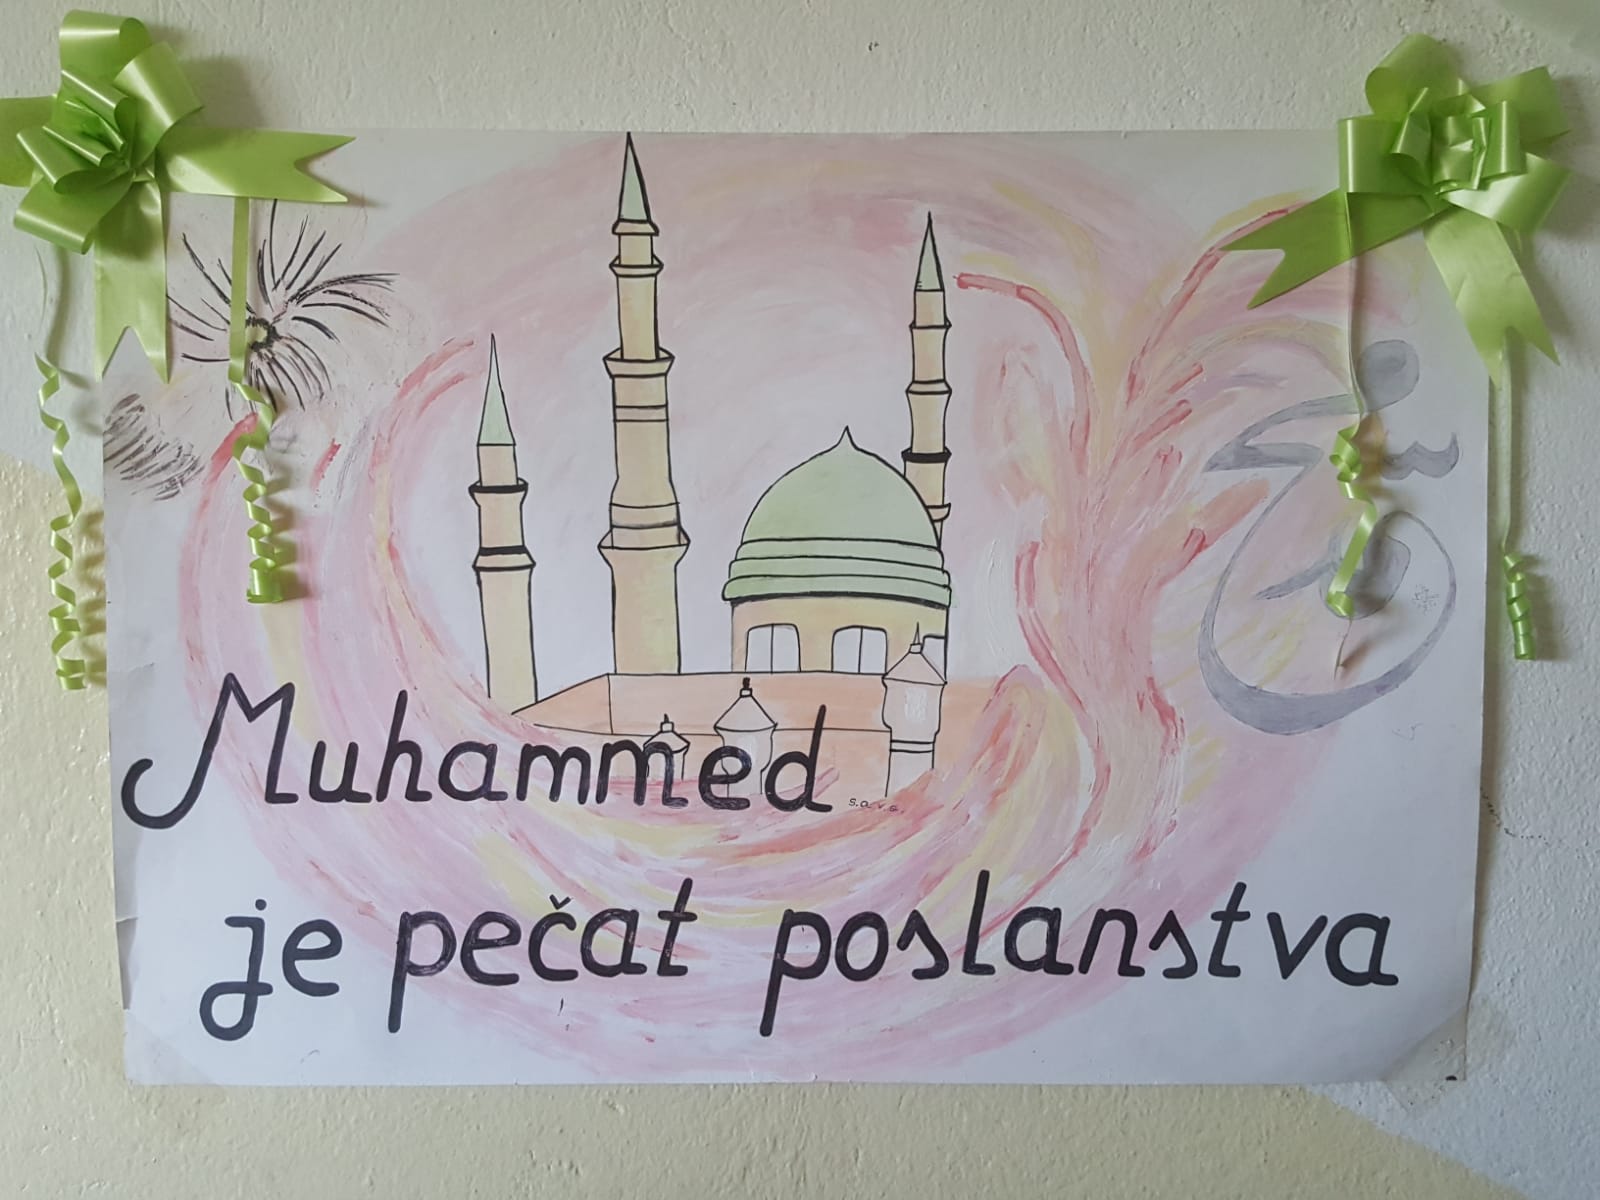 Muhammed s.a.v.s.
je pečat poslanstva